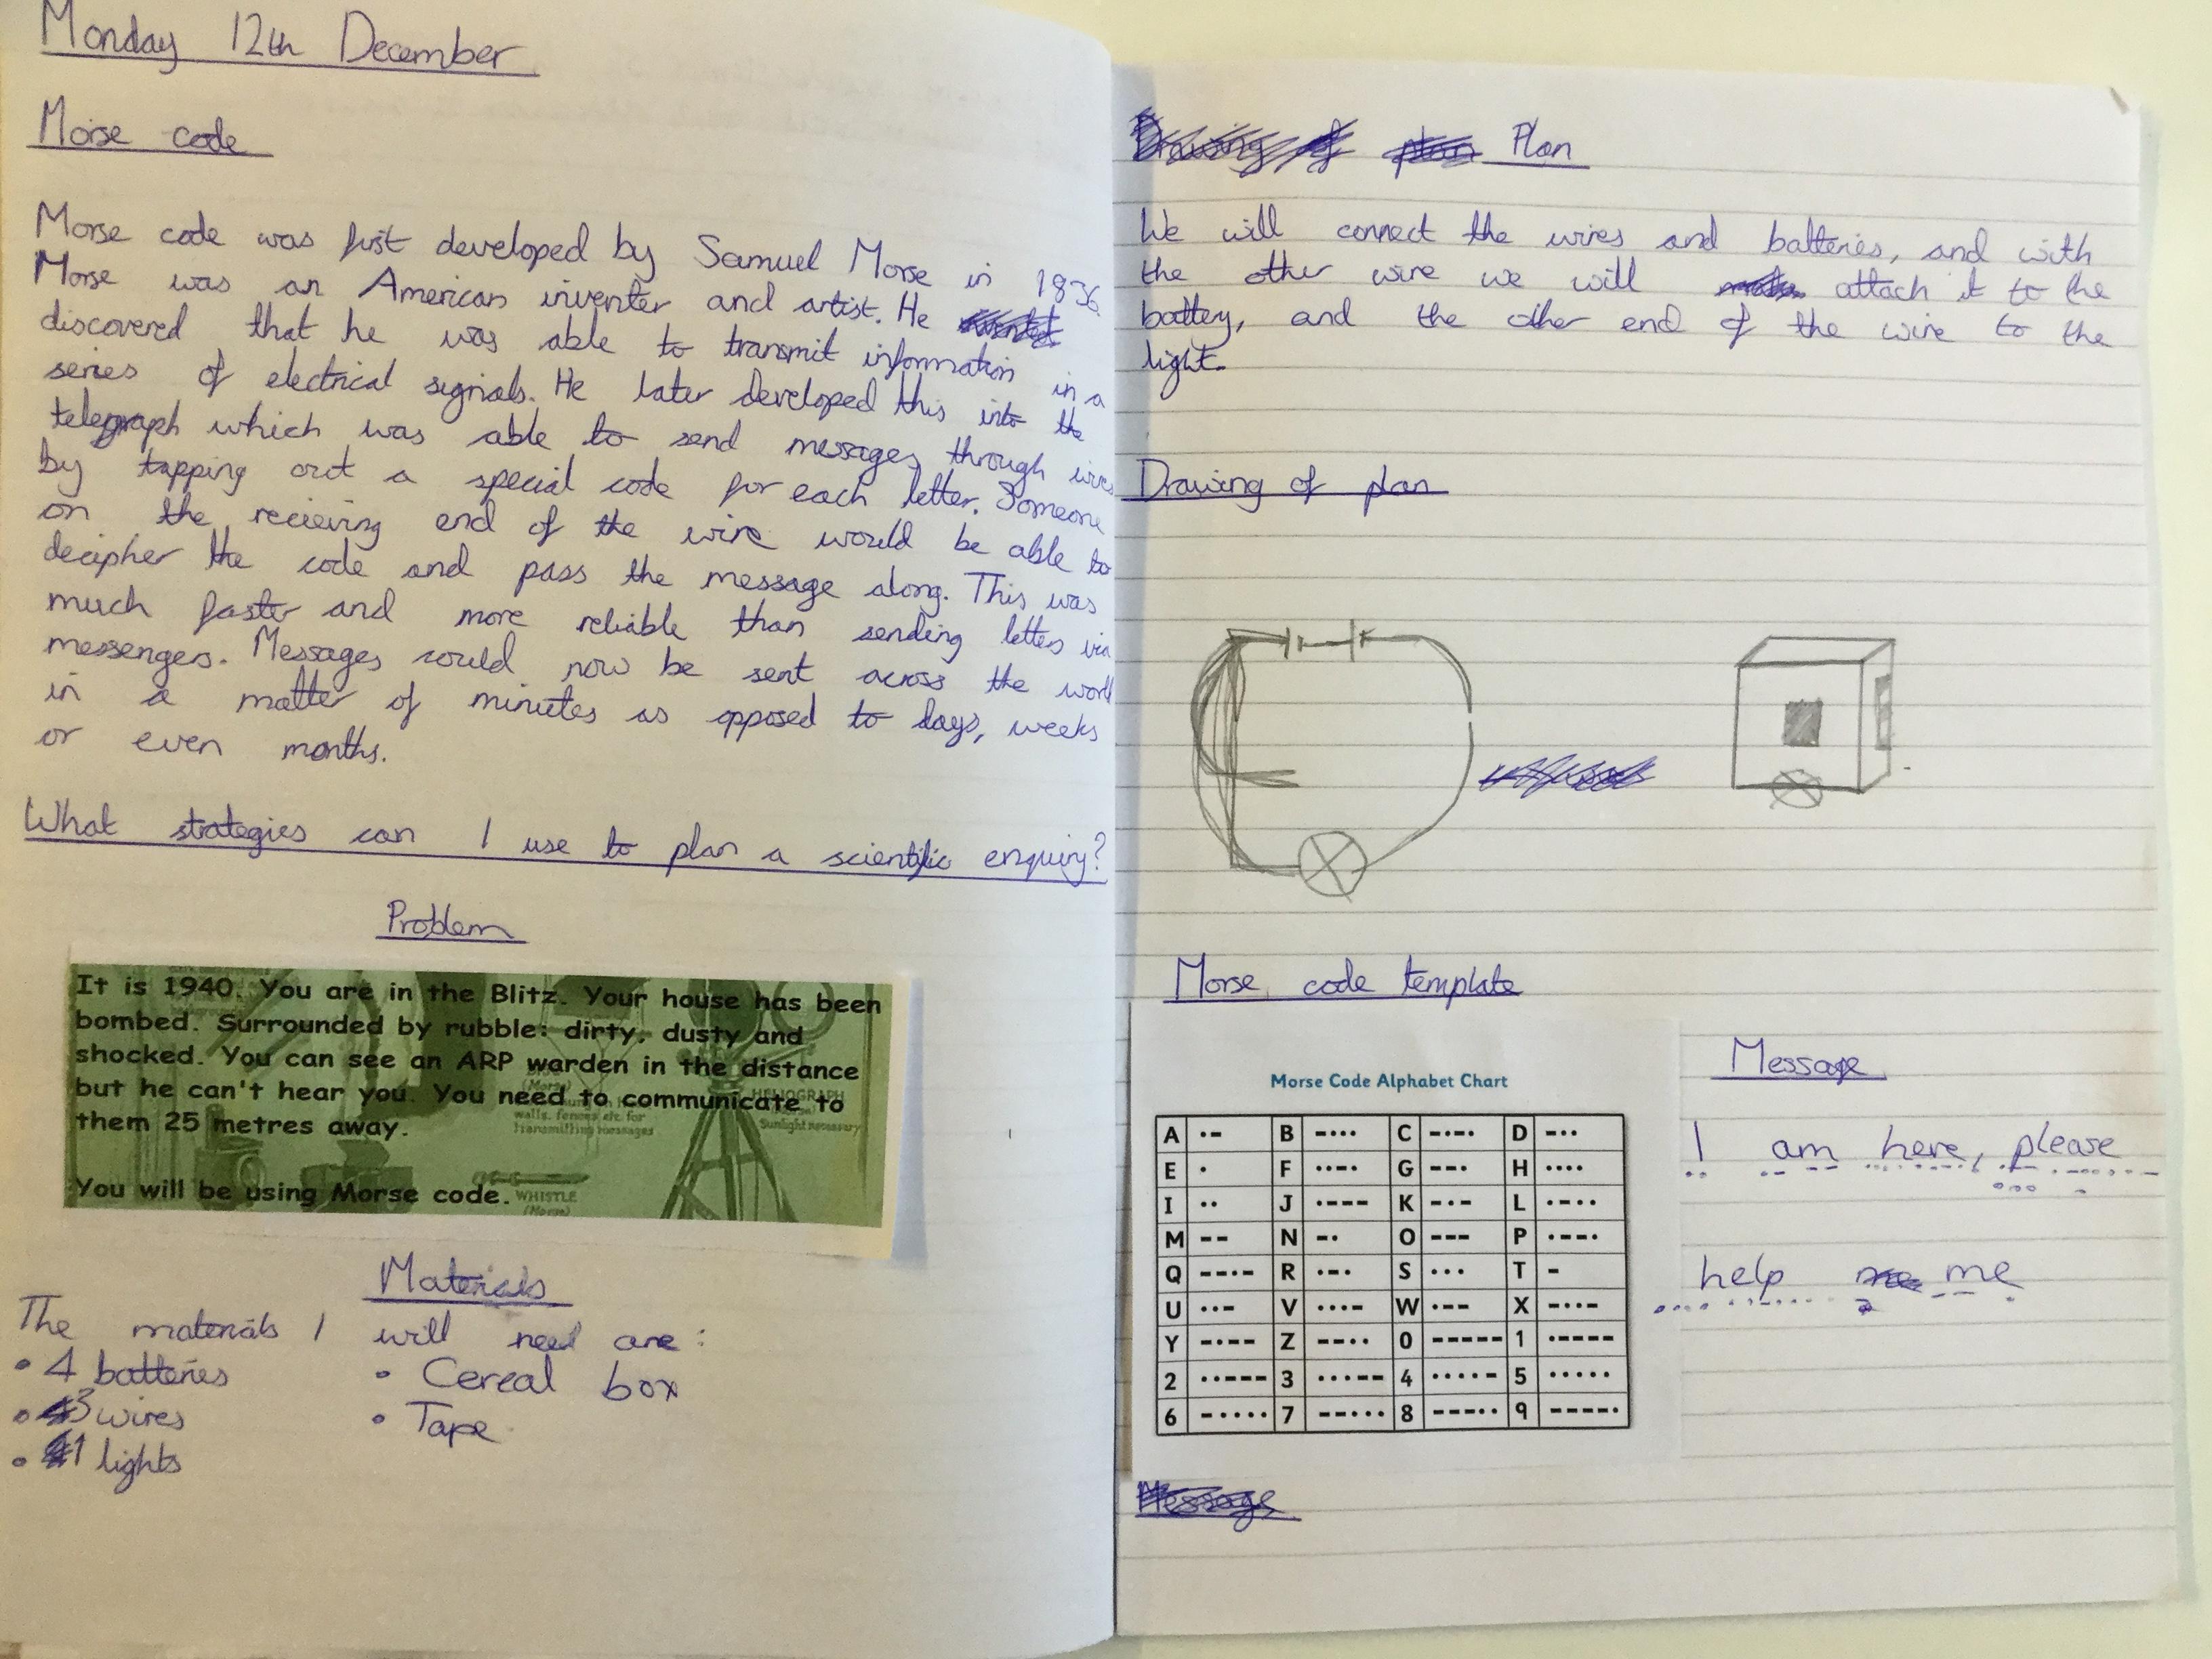 Monday 12th December
Morse code
Morse code was first developed by Samuel Morse in 1836.
Morse was an American inventer and artist. He
discovered that he was able to transmit information in a
series of electrical signals. He later developed this into the
telegraph which was able to send messages through wires
by tapping out a special code for each letter. Someone
on the recieving end of the wire would be able to
decipher the code and pass the message along. This was
much faster and more reliable than sending letters via
messengers. Messages could now be sent across the world
in a matter of minutes as opposed to days, weeks
or even months.
What strategies can I use to plan a scientific enquiry?
Problem
It is 1940. You are in the Blitz. Your house has been
bombed. Surrounded by rubble: dirty, dusty and
shocked. You can see an ARP warden in the distance
but he can't hear you. You need to communicate to
them 25 metres away.
You will be using Morse code.
(Morse)
HELIOGRAPH
walls, fences etc. for
transmitting messages
Sunlight necessary
WHISTLE
(Morse)
Materials
The materials I will need are:
• 4 batteries • Cereal box
• 3 wires • Tape
• 1 lights
Drawing of plan Plan
We will connect the wires and batteries, and with
the other wire we will attach it to the
battery, and the other end of the wire to the
light.
Drawing of plan
Morse code template
Morse Code Alphabet Chart
A •– B –••• C –•–• D –••
E • F ••–• G ––• H ••••
I •• J •––– K –•– L •–••
M –– N –• O ––– P •––•
Q ––•– R •–• S ••• T –
U ••– V •••– W •–– X –••–
Y –•–– Z ––•• 0 ––––– 1 •––––
2 ••––– 3 •••–– 4 ••••– 5 •••••
6 –•••• 7 ––••• 8 –––•• 9 ––––•
Message
I am here, please
help me
Message